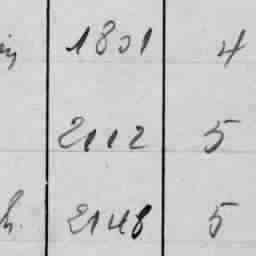 1801 4
2112 5
h. 2148 5